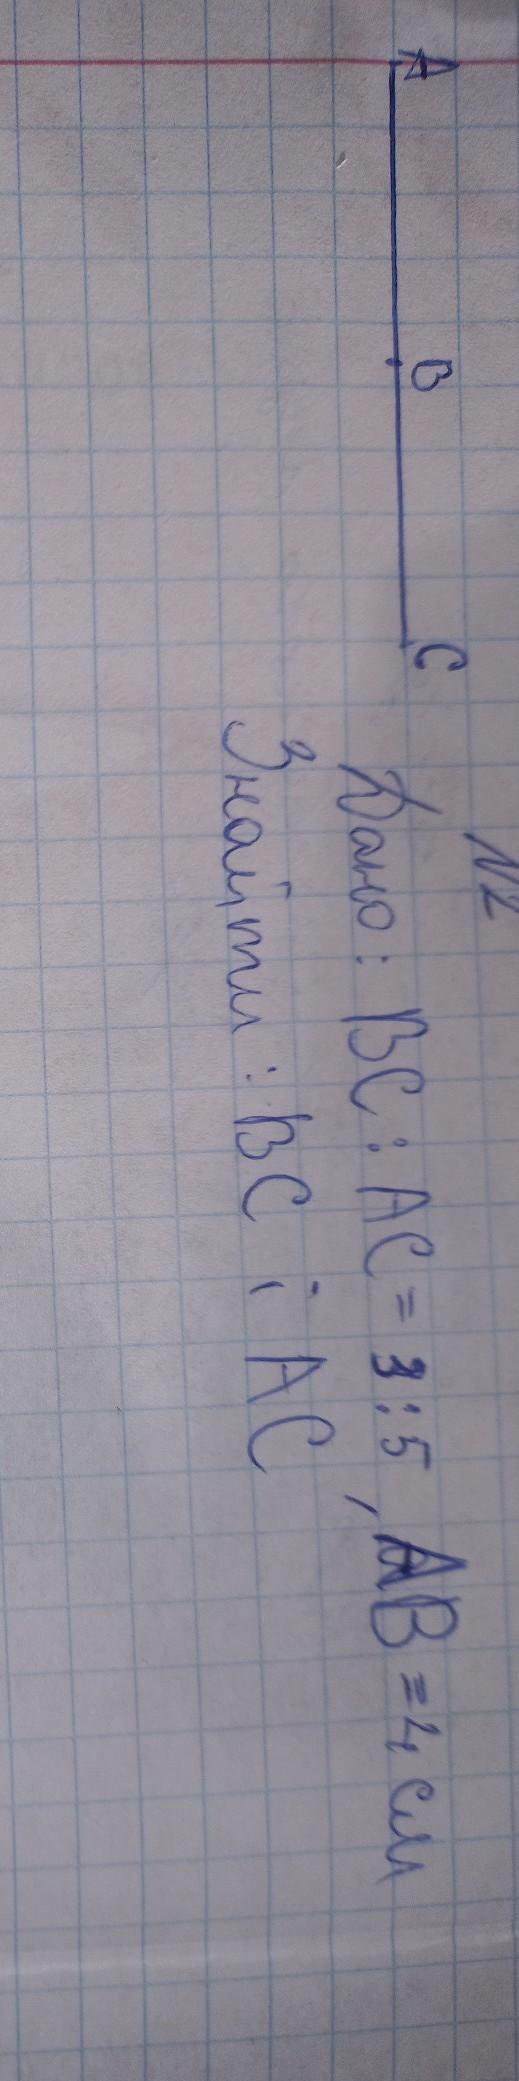 A B C
№2
Дано: BC : AC = 3:5, AB = 4 см
Знайти: BC і AC